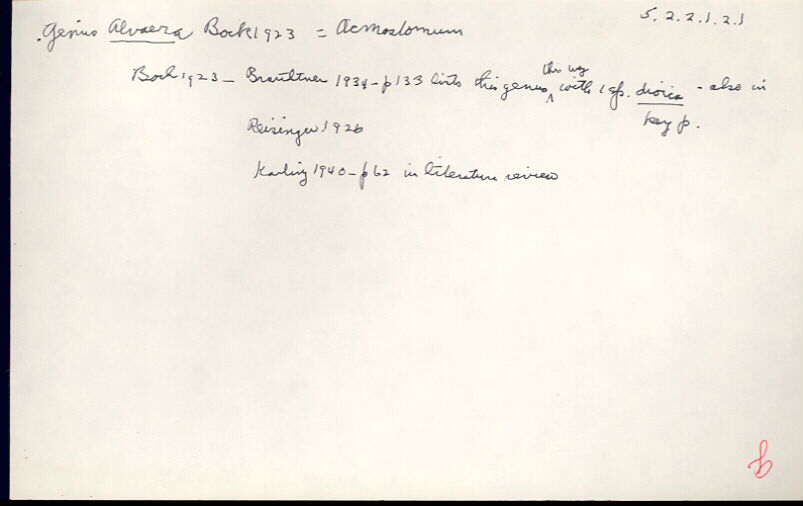 5.2.2.1.2.1
Genus Alvaera Bock 1923 = Acmostomum
Bock 1923 - 1934 - p 133 lists this genus this way with 1 sp. dioica - also in
key p.
Reisinger 1926
Karling 1940 - p 62 in literature review